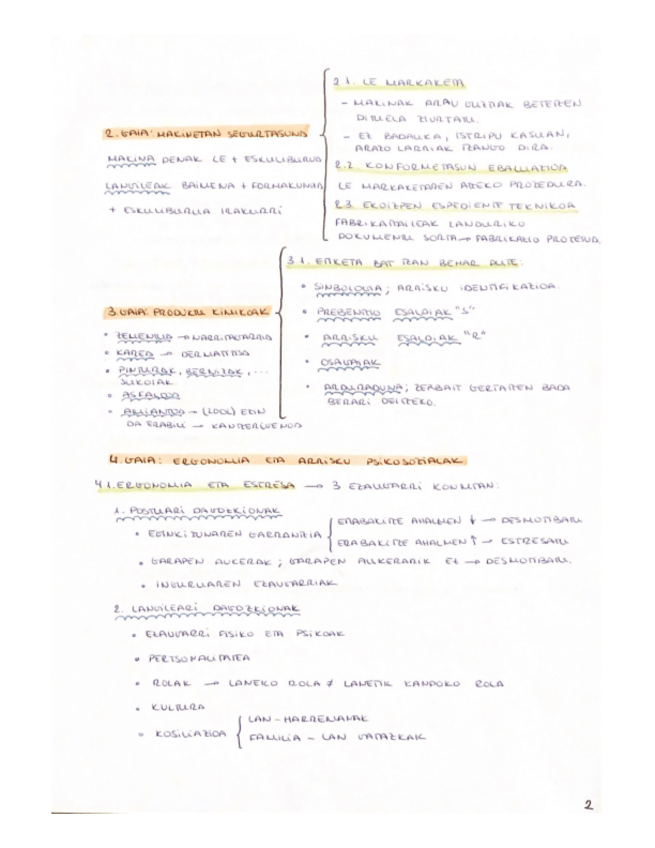 2. GAIA: MAKINETAN SEGURTASUNA
MAKINA DENAK CE + ESKULIBURUA
LANGILEAK BAIMENA + FORMAKUNTZA
+ ESKULIBURUA IRAKURRI
2.1. CE MARKAKETA
- MAKINAK ARAU GUZTIAK BETETZEN
DITUELA ZIURTATU.
- EZ BADAUKA, ISTRIPU KASUAN,
ARAZO LARRIAK IZANGO DIRA.
2.2. KONFORMETASUN EBALUAZIOA
CE MARKAKETAREN ATZEKO PROZEDURA.
2.3. EKOIZPEN ESPEDIENTE TEKNIKOA
FABRIKATZAILEAK LANDURIKO
DOKUMENTU SORTA → FABRIKAZIO PROZESUA.
3. GAIA: PRODUKTU KIMIKOAK
• ZEMENTUA → NARRITAGARRIA
• KAREA → DERMATITISA
• PINTURAK, BERNIZAK, ...
SUKOIAK
• ASFALTOA
• AMIANTOA → (2001) EZIN
DA ERABILI → KANTZERIGENOA
3.1. ETIKETA BAT IZAN BEHAR DUTE:
• SINBOLOGIA; ARRISKU IDENTIFIKAZIOA.
• PREBENTZIO ESALDIAK "S"
• ARRISKU ESALDIAK "R"
• OSAGAIAK
• ARDURADUNA; ZERBAIT GERTATZEN BADA
BERARI DEITZEKO.
4. GAIA: ERGONOMIA ETA ARRISKU PSIKOSOZIALAK
4.1. ERGONOMIA ETA ESTRESA → 3 EZAUGARRI KONTUAN:
1. POSTUARI DAGOZKIONAK
• EGINKIZUNAREN GARRANTZIA
ERABAKITZE AHALMEN ↓ → DESMOTIBATU
ERABAKITZE AHALMEN ↑ → ESTRESATU
• GARAPEN AUKERAK; GARAPEN AUKERARIK EZ → DESMOTIBATU.
• INGURUAREN EZAUGARRIAK
2. LANGILEARI DAGOZKIONAK
• EZAUGARRI FISIKO ETA PSIKOAK
• PERTSONALITATEA
• ROLAK → LANEKO ROLA ≠ LANETIK KANPOKO ROLA
• KULTURA
• KOSILIAZIOA
LAN-HARREMANAK
FAMILIA - LAN GATAZKAK
2